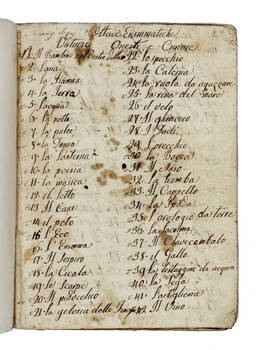 Ottave Enimmatiche
Oneste e Curiose
2. Lana
3. la Fiamma
4. la Terra
5. l'acqua
6. la notte
7. la pulce
9. la Lanterna
10. la poesia
11. la musica
12. il letto
13. Il Cane
14. il peto
15. l'Eco
16. l'Enimma
17. Il Sospiro
18. la Cicala
19. le Scarpe
20. Il pidocchio
21. la gelosia delle
22. lo specchio
23. la Catena
24. la ruota da aguzzare
25. la rena del mare
26. il velo
27. Il ghiaccio
28. I Dadi
29. l'orecchio
30. la Bocca
31. Il Naso
32. la tromba
33. Il Cappello
34. la Spada
35. l'orologio da torre
36. la lacrima
37. Il Clavecembalo
38. il Gallo
39. la testuggine da acqua
40. la Sega
41. l'artiglieria
42. Il Vino